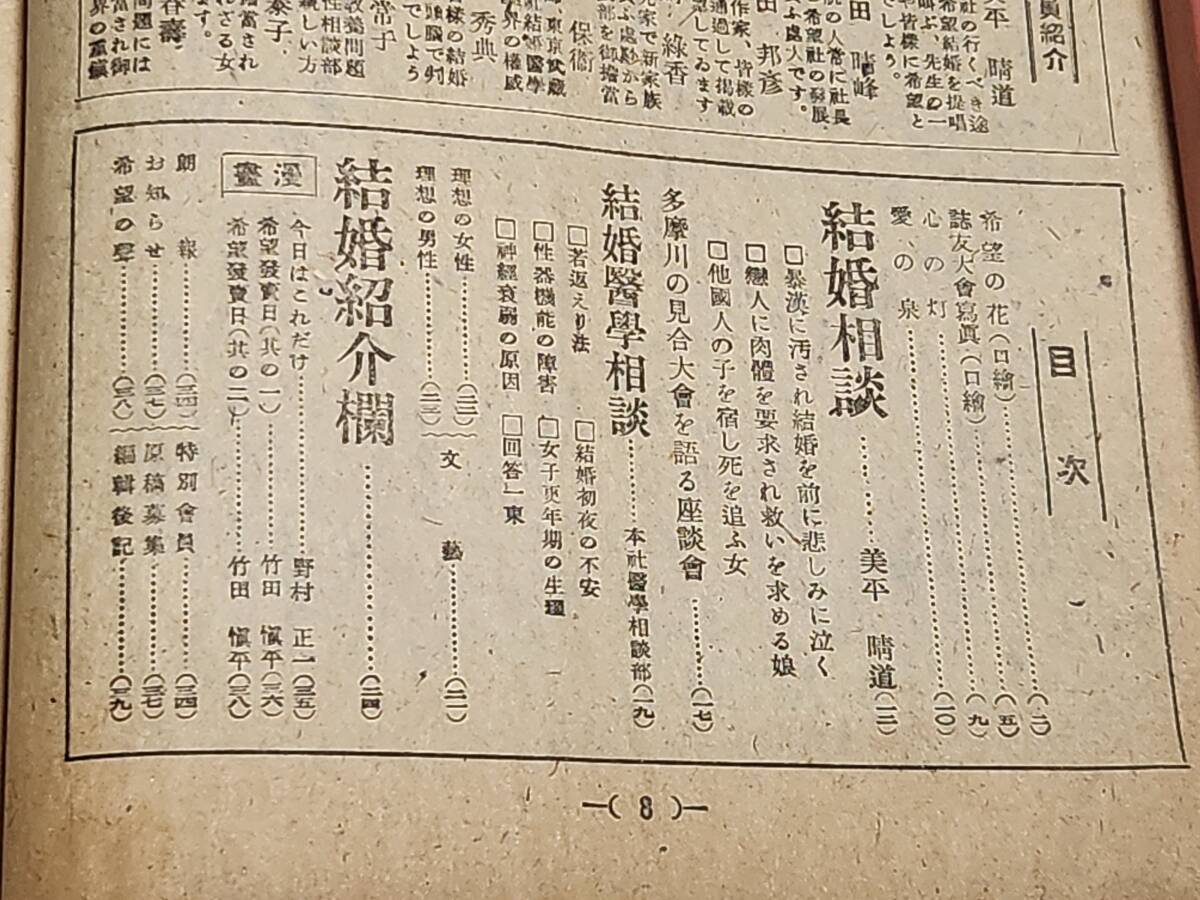 員紹介
美平 晴道
社の行くべき途
希望結婚を提唱
叫ぶ、先生の一
年皆様に希望と
でしよう。
田 晴峰
の人常に社長
希望社の發展、
ふ處大です。
田 邦彦
作家、皆様の
通過して掲載
望してゐます
綠香
家で新家族
ふ處紗から
部を御擔當
保衞
東京武藏
社結婚醫學
界の權威
秀典
樣の結婚
頭腦で判
でしよう
常子
敎養問題
性相談部
親しい方
泰子
擔當され
れざる女
ます。
春壽
問題には
當され御
界の重鎭
目次
希望の花(口繪)…………(二)
誌友大會寫眞(口繪)…………(五)
心の灯…………(九)
愛の泉…………(一〇)
結婚相談………美平 晴道(一二)
□暴漢に汚され結婚を前に悲しみに泣く
□戀人に肉體を要求され救いを求める娘
□他國人の子を宿し死を追ふ女
多摩川の見合大會を語る座談會………(一七)
結婚醫學相談………本社醫學相談部(一九)
□若返えり法 □結婚初夜の不安
□性器機能の障害 □女子更年期の生理
□神經衰弱の原因 □回答」東
理想の女性…………(二二)
理想の男性…………(二三)
文藝…………(二一)
結婚紹介欄…………(二四)
漫畫
今日はこれだけ…………野村 正一(三五)
希望發賣日(其の一)…………竹田 愼平(三六)
希望發賣日(其の二)…………竹田 愼平(三八)
朗報…………(三四)
特別會員…………(三四)
お知らせ…………(三七)
原稿募集…………(三七)
希望の聲…………(三八)
編輯後記…………(三九)
—( 8 )—